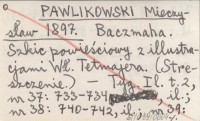 PAWLIKOWSKI Mieczy-
sław 1897. Baczmaha.
Szkic powieściowy z illustra-
cjami Wł. Tetmajera. (Stre-
szczenie.) — Tyg. Il. t. 2,
nr 37: 733-734 il.;
nr 38: 740-742, il.; nr 39: